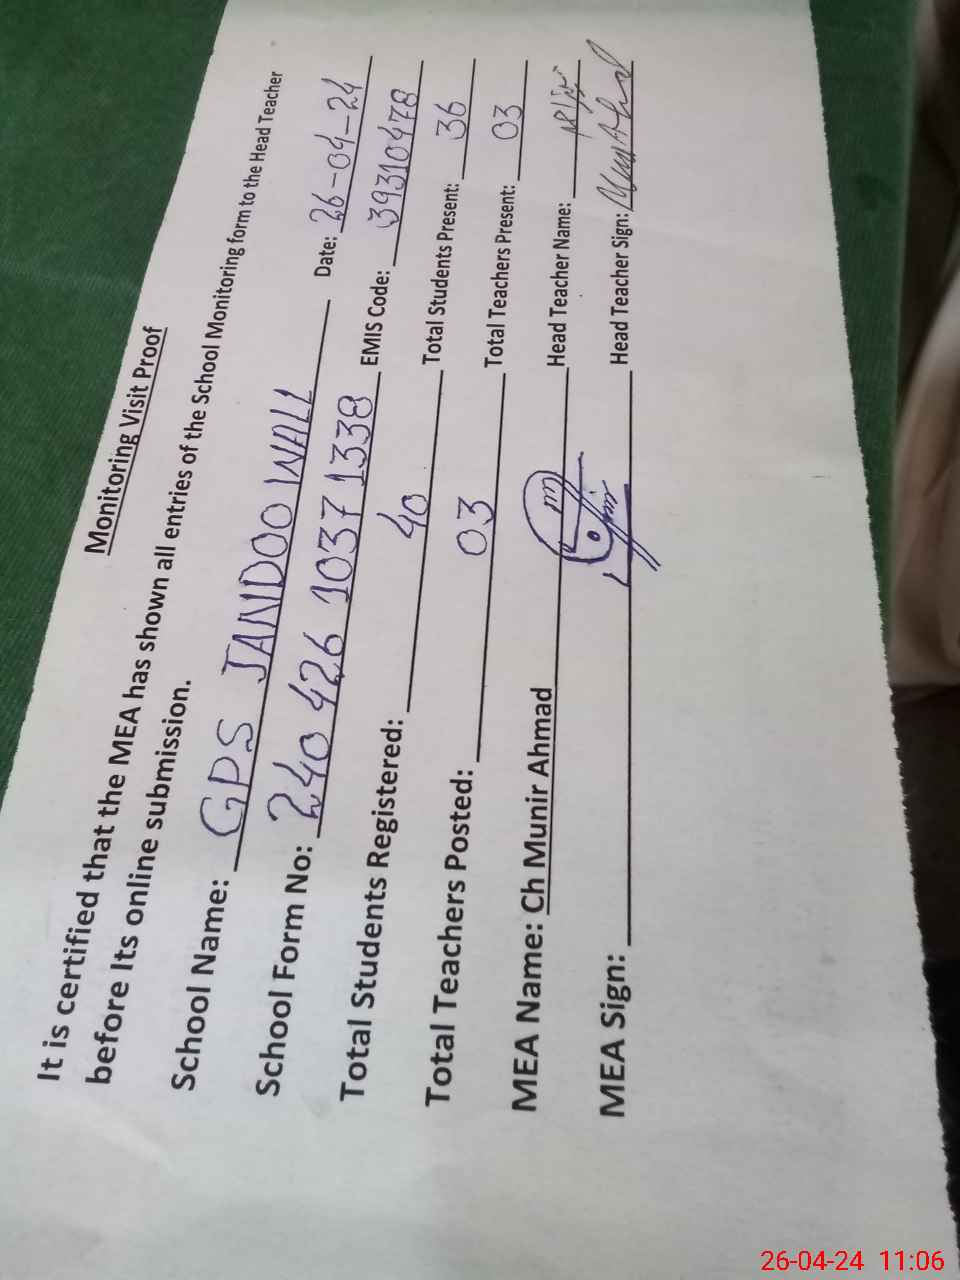 Monitoring Visit Proof
It is certified that the MEA has shown all entries of the School Monitoring form to the Head Teacher
before Its online submission.
School Name: GPS JANDOO WALI Date: 26-04-24
School Form No: 240 426 1037 1338 EMIS Code: 39310478
Total Students Registered: 40 Total Students Present: 36
Total Teachers Posted: 03 Total Teachers Present: 03
MEA Name: Ch Munir Ahmad Head Teacher Name:
MEA Sign: Head Teacher Sign:
26-04-24 11:06